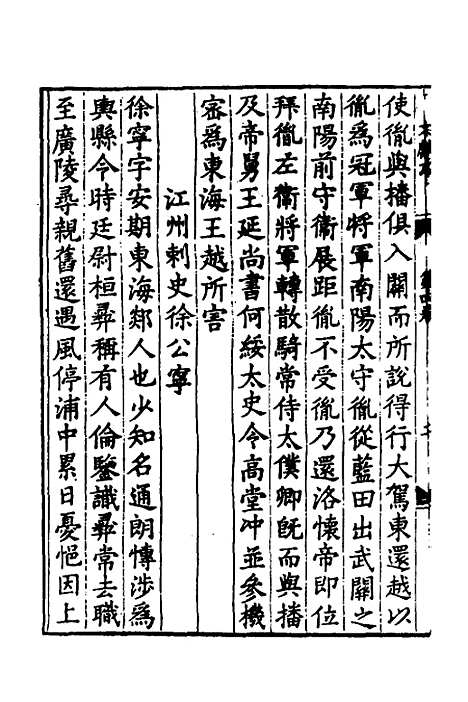 使胤與播俱入關而所說得行大駕東還越以
胤爲冠軍將軍南陽太守胤從藍田出武關之
南陽前守衞展距胤不受胤乃還洛懷帝即位
拜胤左衞將軍轉散騎常侍太僕卿旣而與播
及帝舅王延尚書何綏太史令高堂冲並參機
密爲東海王越所害
江州刺史徐公寧
徐寧字安期東海郯人也少知名通朗愽涉爲
輿縣令時廷尉桓彝稱有人倫鑒識彝常去職
至廣陵尋親舊還遇風停浦中累日憂悒因上